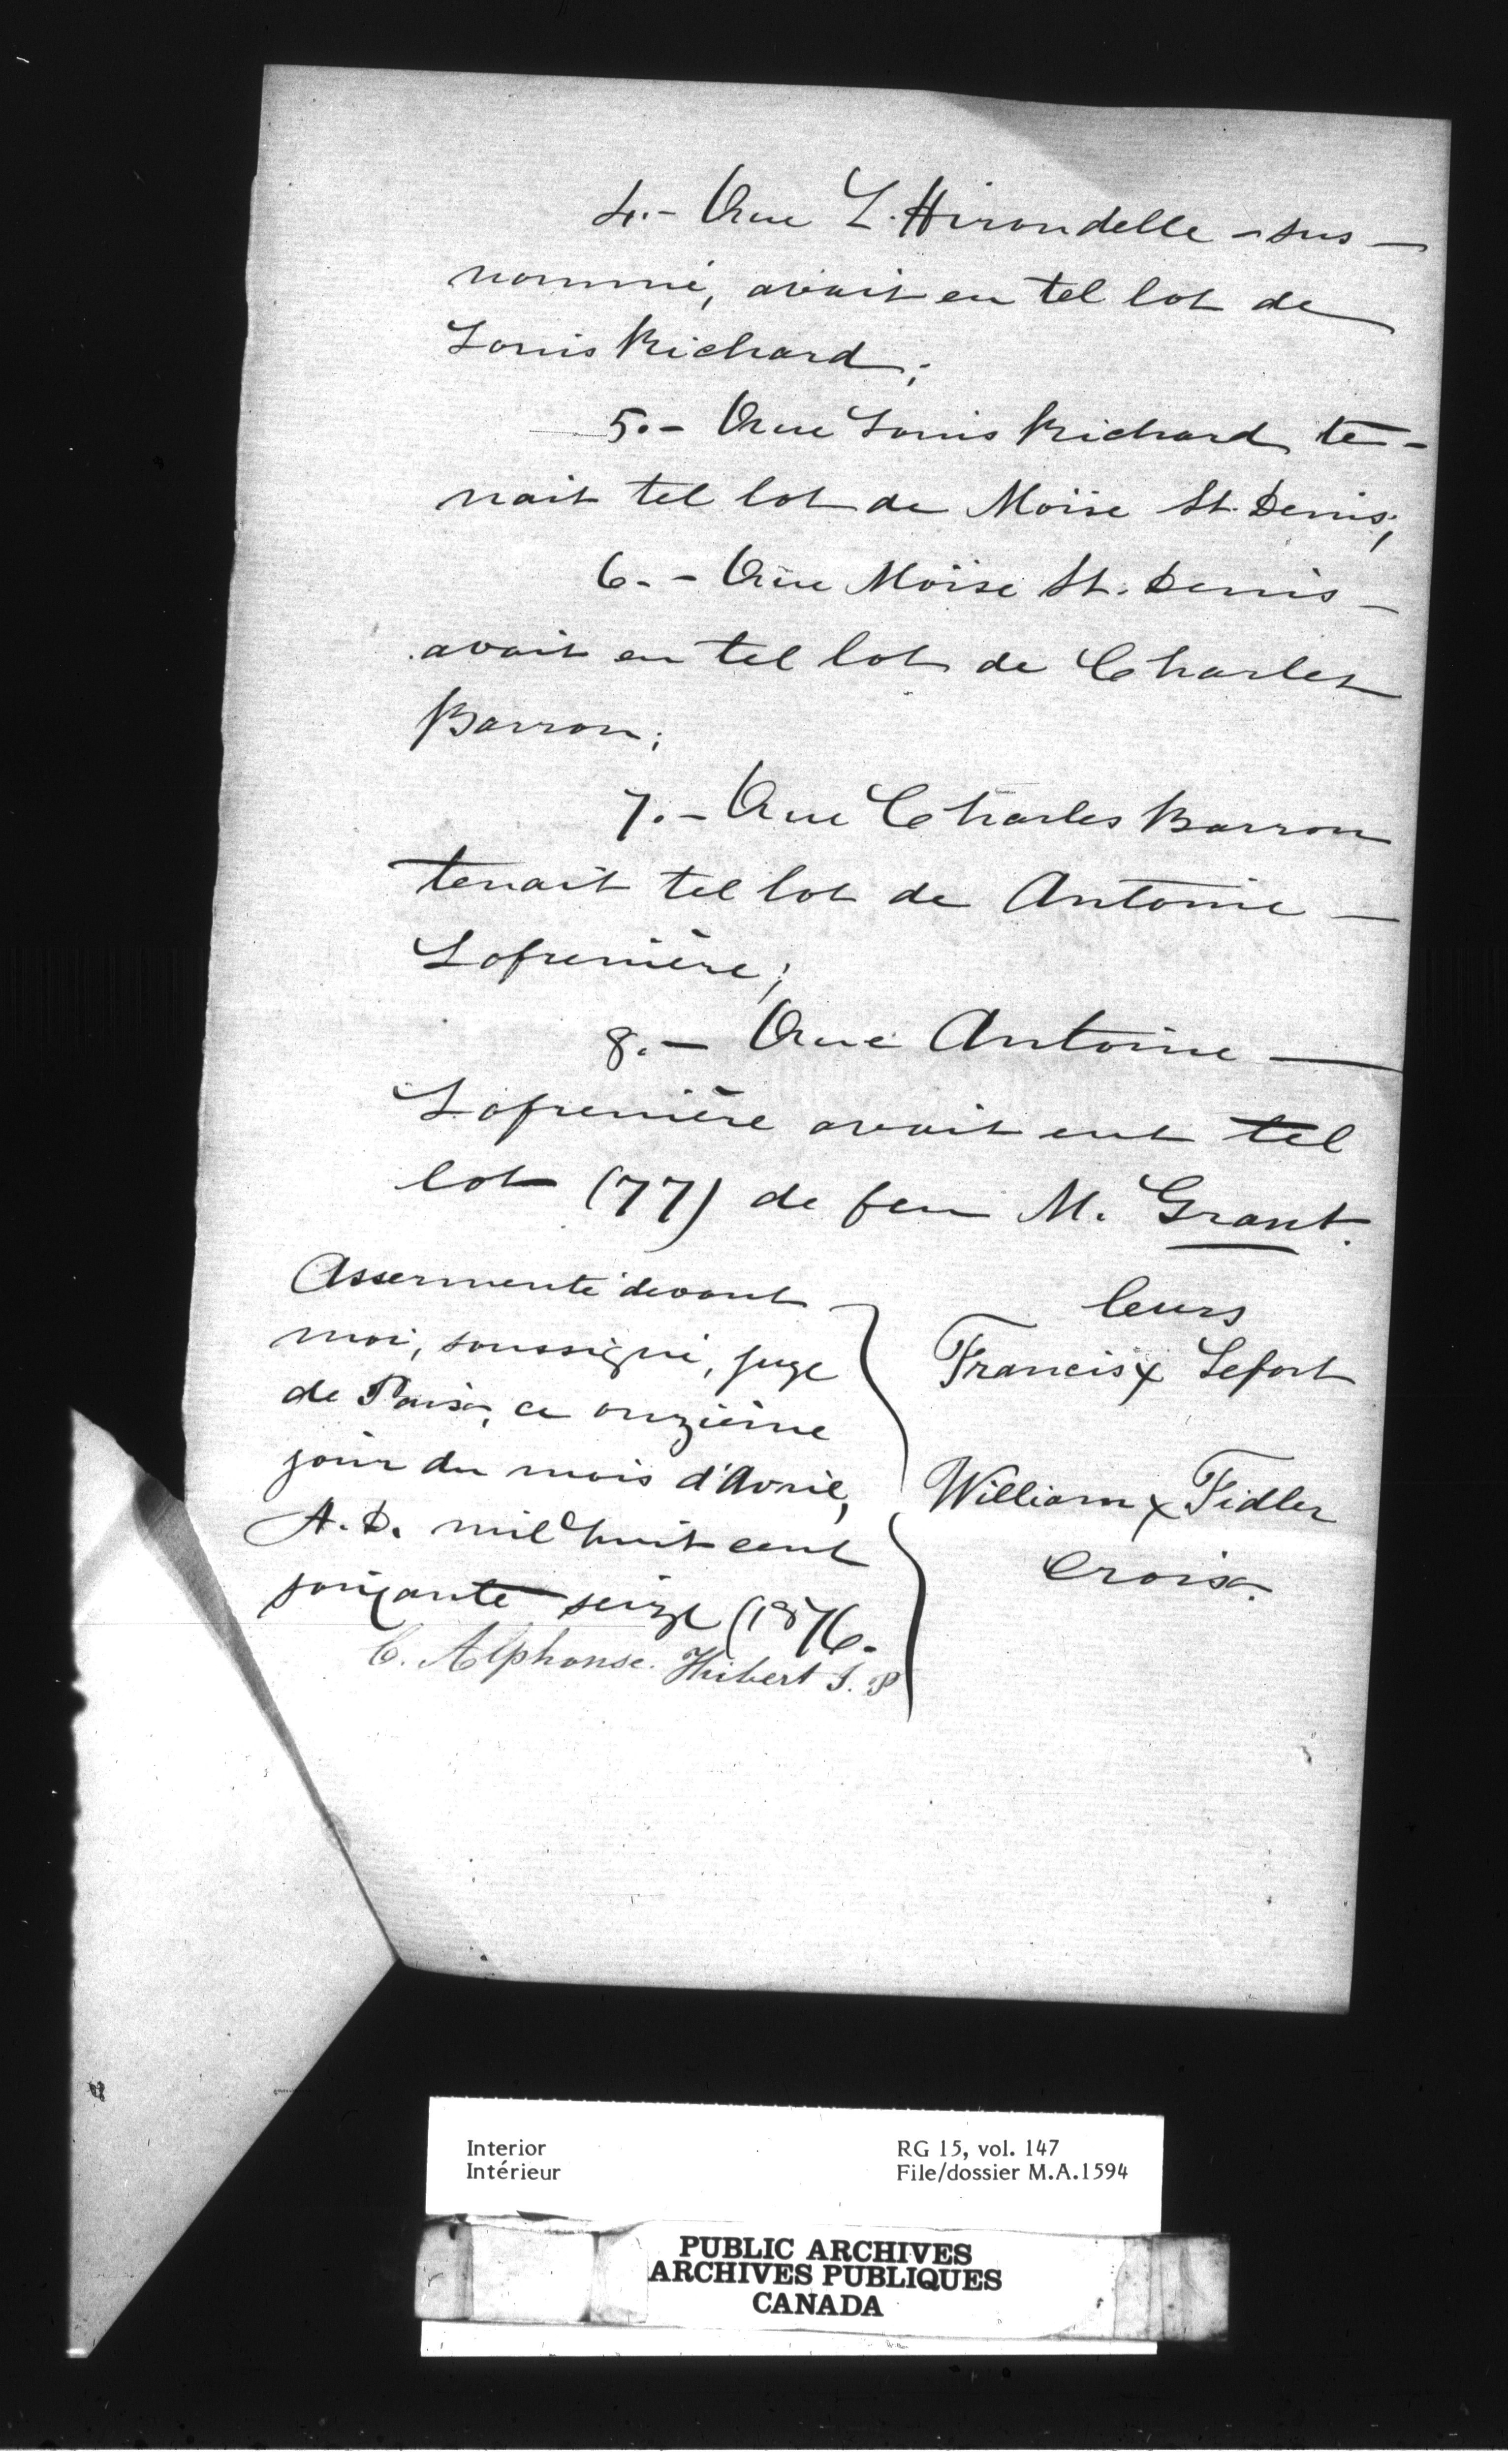 4.- Que L. Hirondelle - sus -
nommé, avait eu tel lot de
Louis Richard;
5.- Que Louis Richard te -
nait tel lot de Moïse St. Denis;
6.- Que Moïse St. Denis -
avait eu tel lot de Charles
Barron;
7.- Que Charles Barron
tenait tel lot de Antoine -
Lafrenière;
8.- Que Antoine -
Lafrenière avait eut tel
lot (77) de feu M. Grant.
Assermenté devant
moi, soussigné, juge
de Paix, ce onzième
jour du mois d'Avril,
A. D. mil huit cent
soixante-seize (1876.
C. Alphonse. Hibert J. P
leurs
Francis x Lefort
William x Fidler
Croix.
Interior
Intérieur
RG 15, vol. 147
File/dossier M.A.1594
PUBLIC ARCHIVES
ARCHIVES PUBLIQUES
CANADA